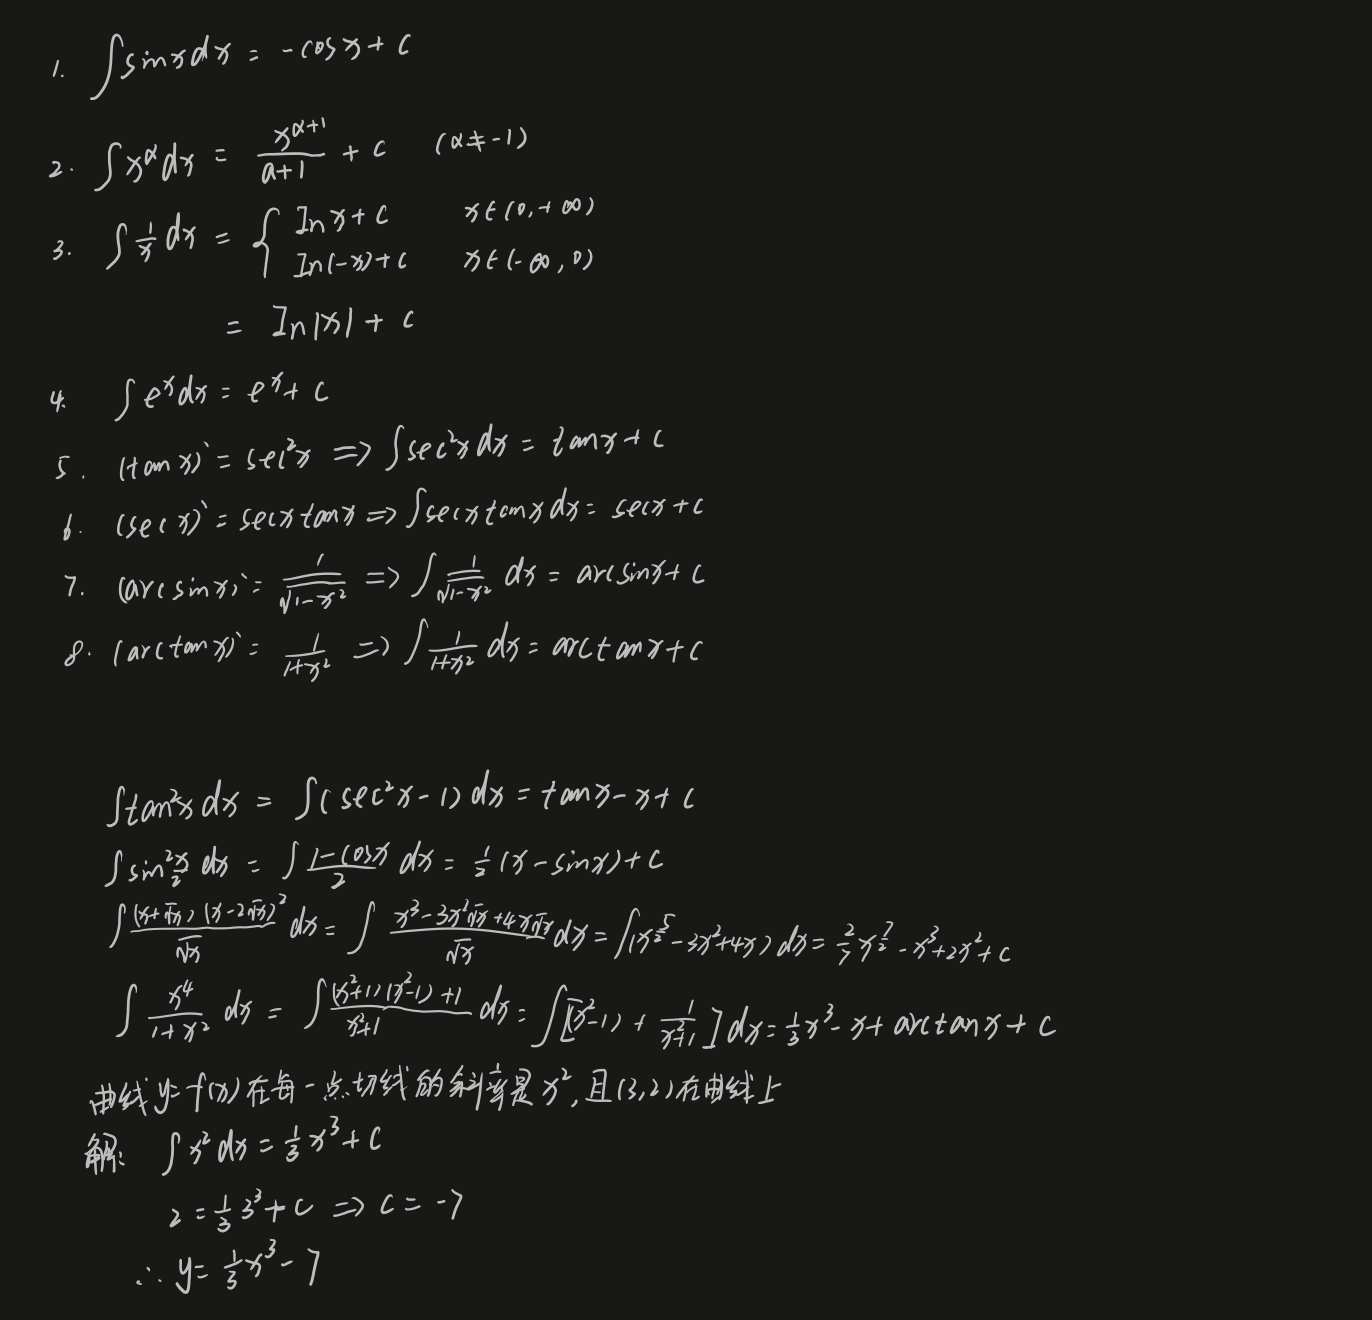 1. ∫sinxdx = -cosx + c
2. ∫x^α dx = x^(α+1)/(a+1) + c (α≠-1)
3. ∫ 1/x dx = { In x + c x∈(0,+∞)
In(-x)+c x∈(-∞,0)
= In|x| + c
4. ∫e^x dx = e^x + c
5. (tan x)` = sec²x => ∫sec²x dx = tanx + c
6. (sec x)` = secxtanx => ∫secxtanxdx = secx + c
7. (arcsinx)` = 1/√(1-x²) => ∫ 1/√(1-x²) dx = arcsinx + c
8. (arctanx)` = 1/(1+x²) => ∫ 1/(1+x²) dx = arctanx + c
∫tan²x dx = ∫(sec²x-1)dx = tanx - x + c
∫sin² x/2 dx = ∫ (1-cosx)/2 dx = 1/2 (x-sinx) + c
∫ (x+√x)(x-2√x)²/√x dx = ∫ (x³-3x²√x+4x√x)/√x dx = ∫(x^(5/2)-3x²+4x)dx = 2/7 x^(7/2) - x³+2x²+c
∫ x⁴/(1+x²) dx = ∫ ((x²+1)(x²-1)+1)/(x²+1) dx = ∫[(x²-1) + 1/(x²+1)]dx = 1/3 x³ - x + arctanx + c
曲线y=f(x)在每一点切线的斜率是x²,且(3,2)在曲线上
解: ∫x²dx = 1/3 x³ + c
2 = 1/3 3³ + c => c = -7
∴ y = 1/3 x³ - 7